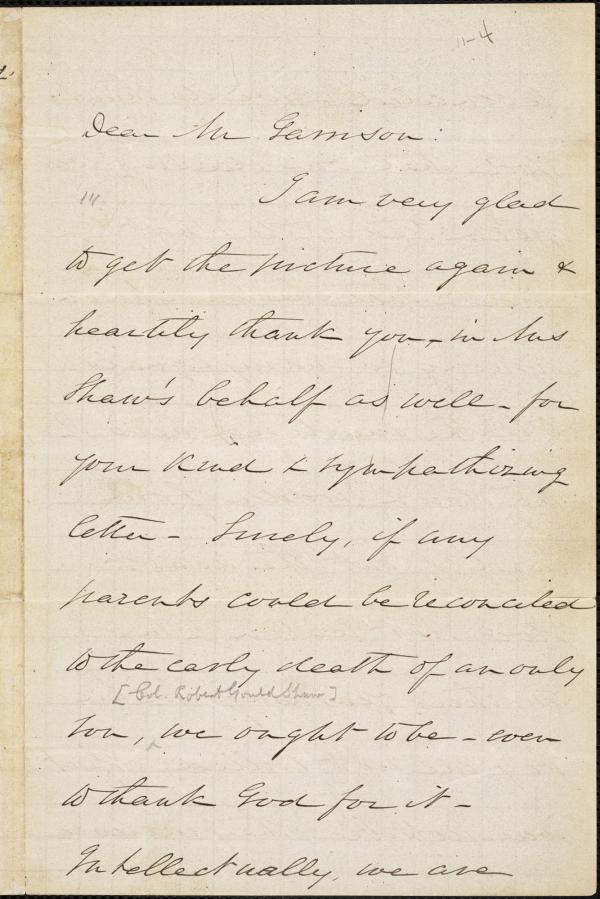 11-4
Dear Mr Garrison:
I am very glad
to get the picture again &
heartily thank you, in Mrs
Shaw's behalf as well - for
your kind & sympathizing
letter - Surely, if any
parents could be reconciled
to the early death of an only
[Col. Robert Gould Shaw]
son, we ought to be - even
to thank God for it -
Intellectually, we are